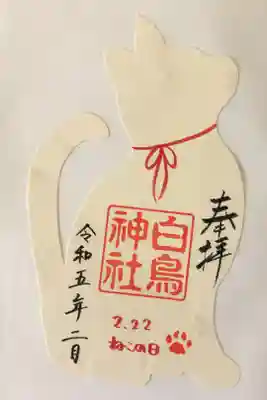 奉拝
白鳥
神社
2.22
ねこの日
令和五年二月